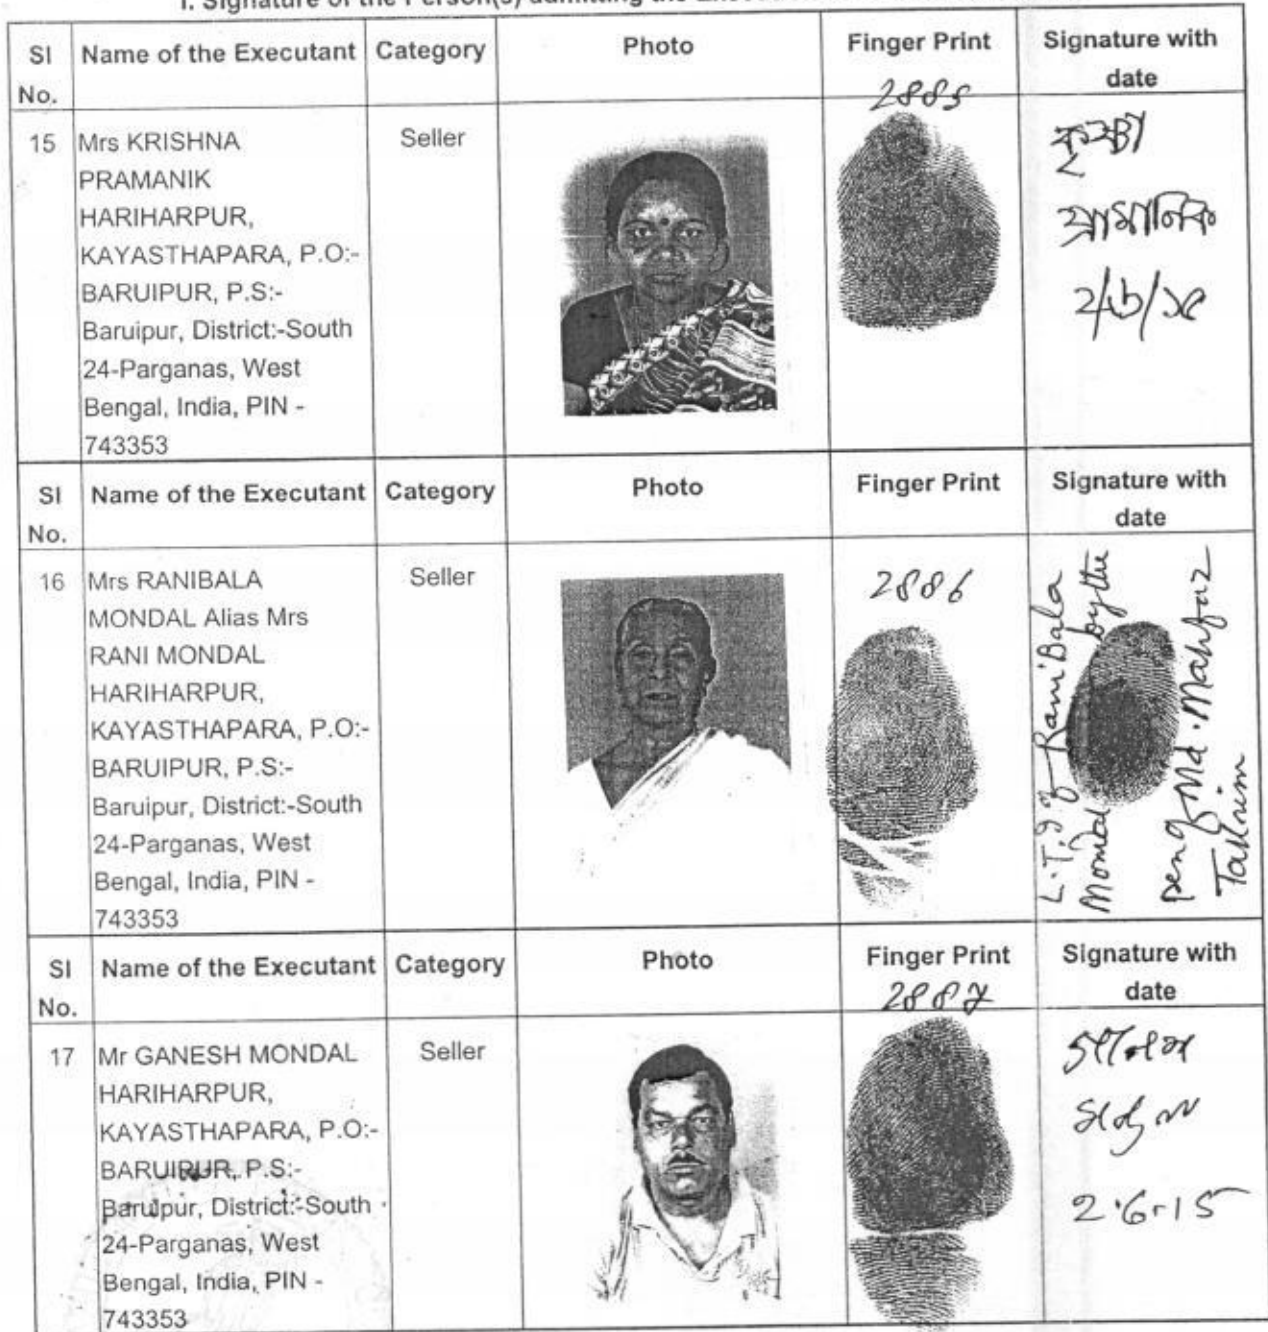 I. Signature of the Person(s) admitting the
Sl No. Name of the Executant Category Photo Finger Print Signature with date
2885
15 Mrs KRISHNA Seller
PRAMANIK
HARIHARPUR,
KAYASTHAPARA, P.O:-
BARUIPUR, P.S:-
Baruipur, District:-South
24-Parganas, West
Bengal, India, PIN -
743353
কৃষ্ণা
প্রামানিক
২/৬/১৫
Sl No. Name of the Executant Category Photo Finger Print Signature with date
16 Mrs RANIBALA Seller
MONDAL Alias Mrs
RANI MONDAL
HARIHARPUR,
KAYASTHAPARA, P.O:-
BARUIPUR, P.S:-
Baruipur, District:-South
24-Parganas, West
Bengal, India, PIN -
743353
2886
L.T.I of Rani Bala
Mondal by the
pen of Md. Mahfaz
Sl No. Name of the Executant Category Photo Finger Print Signature with date
2887
17 Mr GANESH MONDAL Seller
HARIHARPUR,
KAYASTHAPARA, P.O:-
BARUIPUR, P.S:-
Baruipur, District:-South
24-Parganas, West
Bengal, India, PIN -
743353
গনেশ
মন্ডল
2.6.15